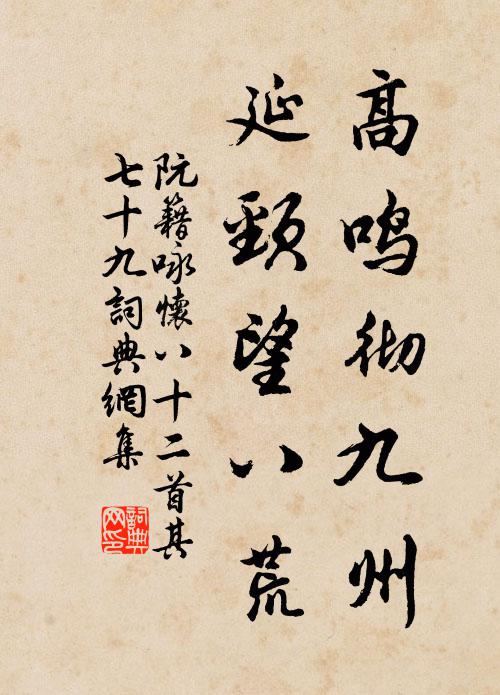 高鸣彻九州
延頸望八荒
阮籍咏懷八十二首其
七十九詞典網集
詞典
网印